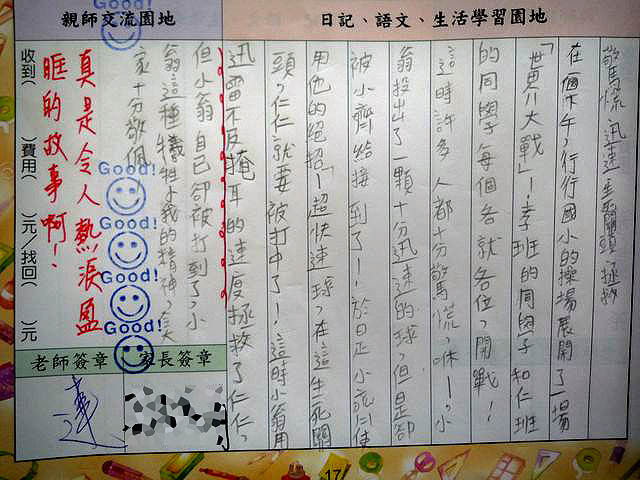 日記、語文、生活學習園地
親師交流園地
驚慌 迅速 生死關頭 拯救
在一個下午,行行國小的操場展開了一場
「世界八大戰」!孝班的同學和仁班
的同學每個各就各位,開戰!
這時許多人都十分驚慌,咻——,小
翁投出了一顆十分迅速的球,但是卻
被小齊給接到了!於是小齊使
用他的絕招「超快速球,在這生死關
頭,仁仁就要被打中了!這時小翁用
迅雷不及掩耳的速度拯救了仁仁,
但小翁自己卻被打到了,小
翁這種犧牲小我的精神,令大
家十分敬佩
真是令人熱淚盈
眶的故事啊!
Good!
Good!
Good!
Good!
收到( )費用( )元/找回( )元
家長簽章
老師簽章
17